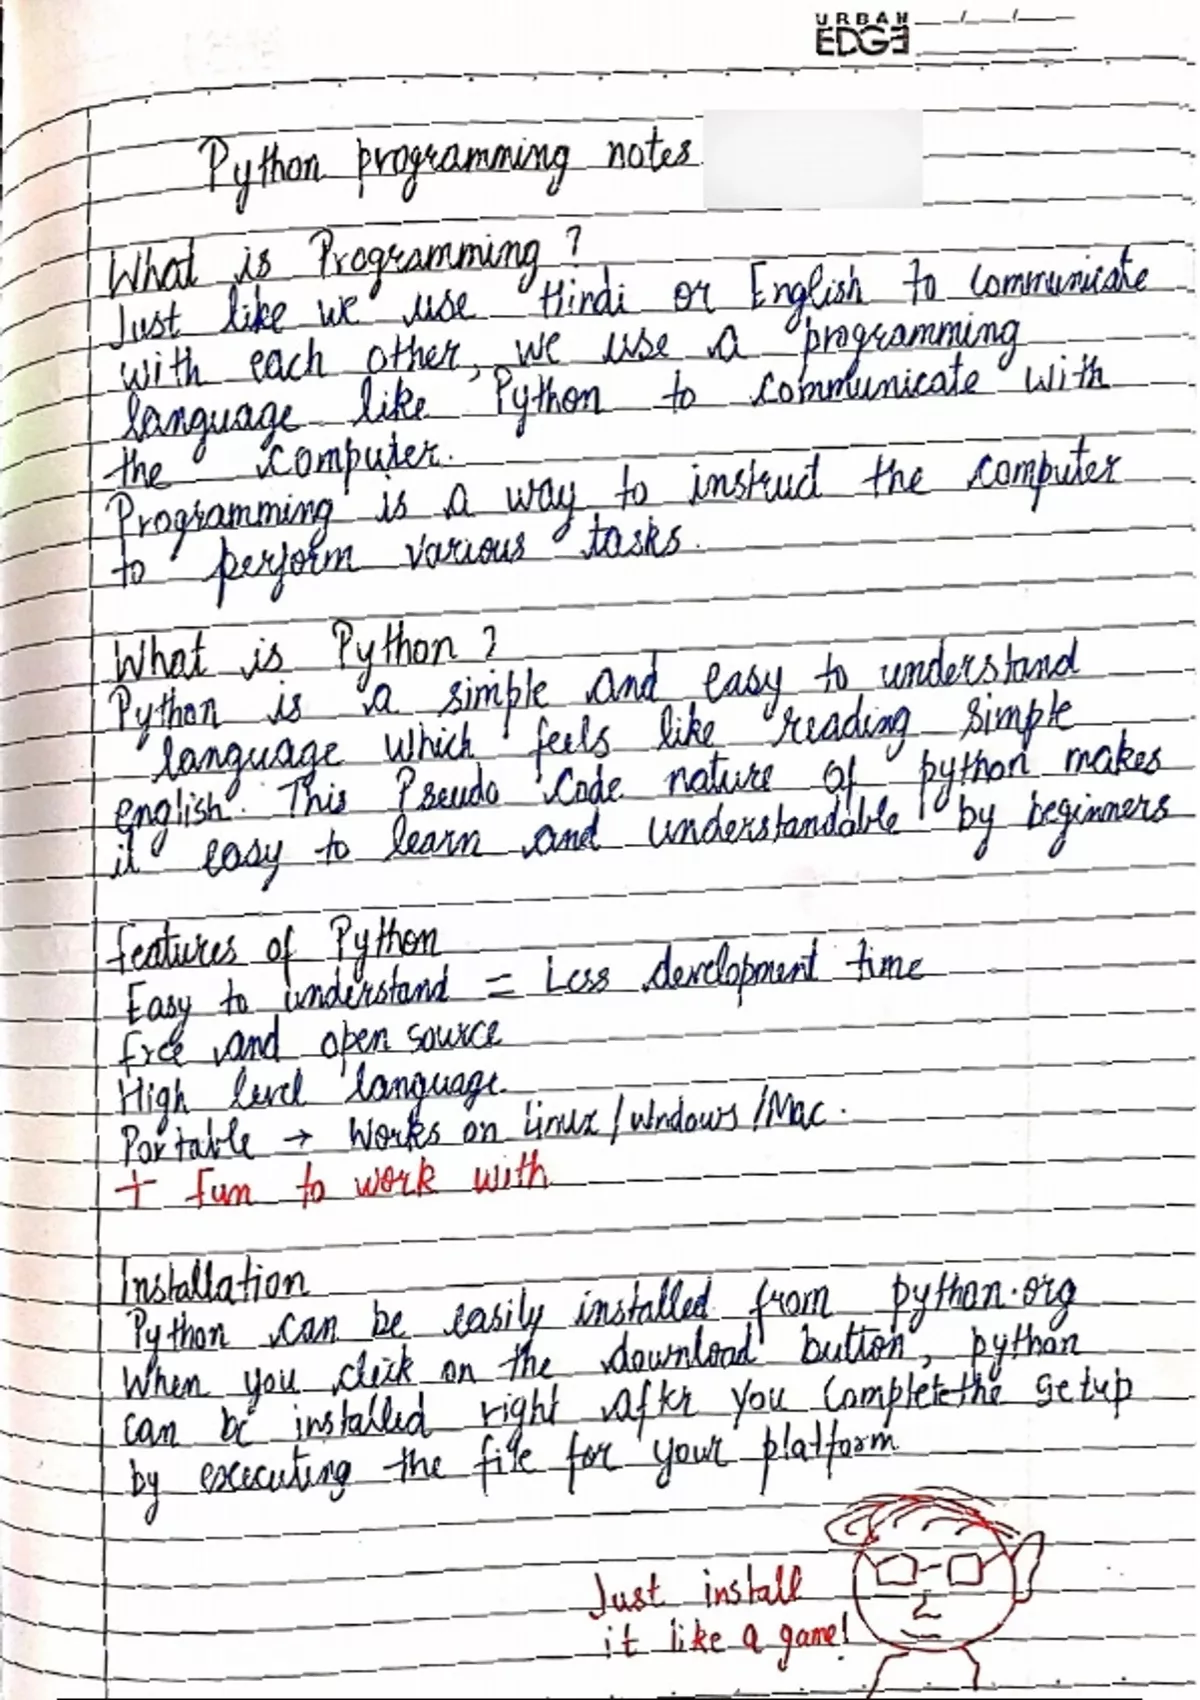 URBAN
EDGE
Python programming notes
What is Programming ?
Just like we use Hindi or English to communicate
with each other, we use a programming
language like Python to communicate with
the computer.
Programming is a way to instruct the computer
to perform various tasks.
What is Python ?
Python is a simple and easy to understand
language which feels like reading simple
english. This Pseudo Code nature of python makes
it easy to learn and understandable by beginners
Features of Python
Easy to understand = Less development time
Free and open source
High level language
Portable → Works on Linux / Windows / Mac.
+ Fun to work with
Installation
Python can be easily installed from python.org
When you click on the download button, python
can be installed right after you complete the setup
by executing the file for your platform
Just install
it like a game!